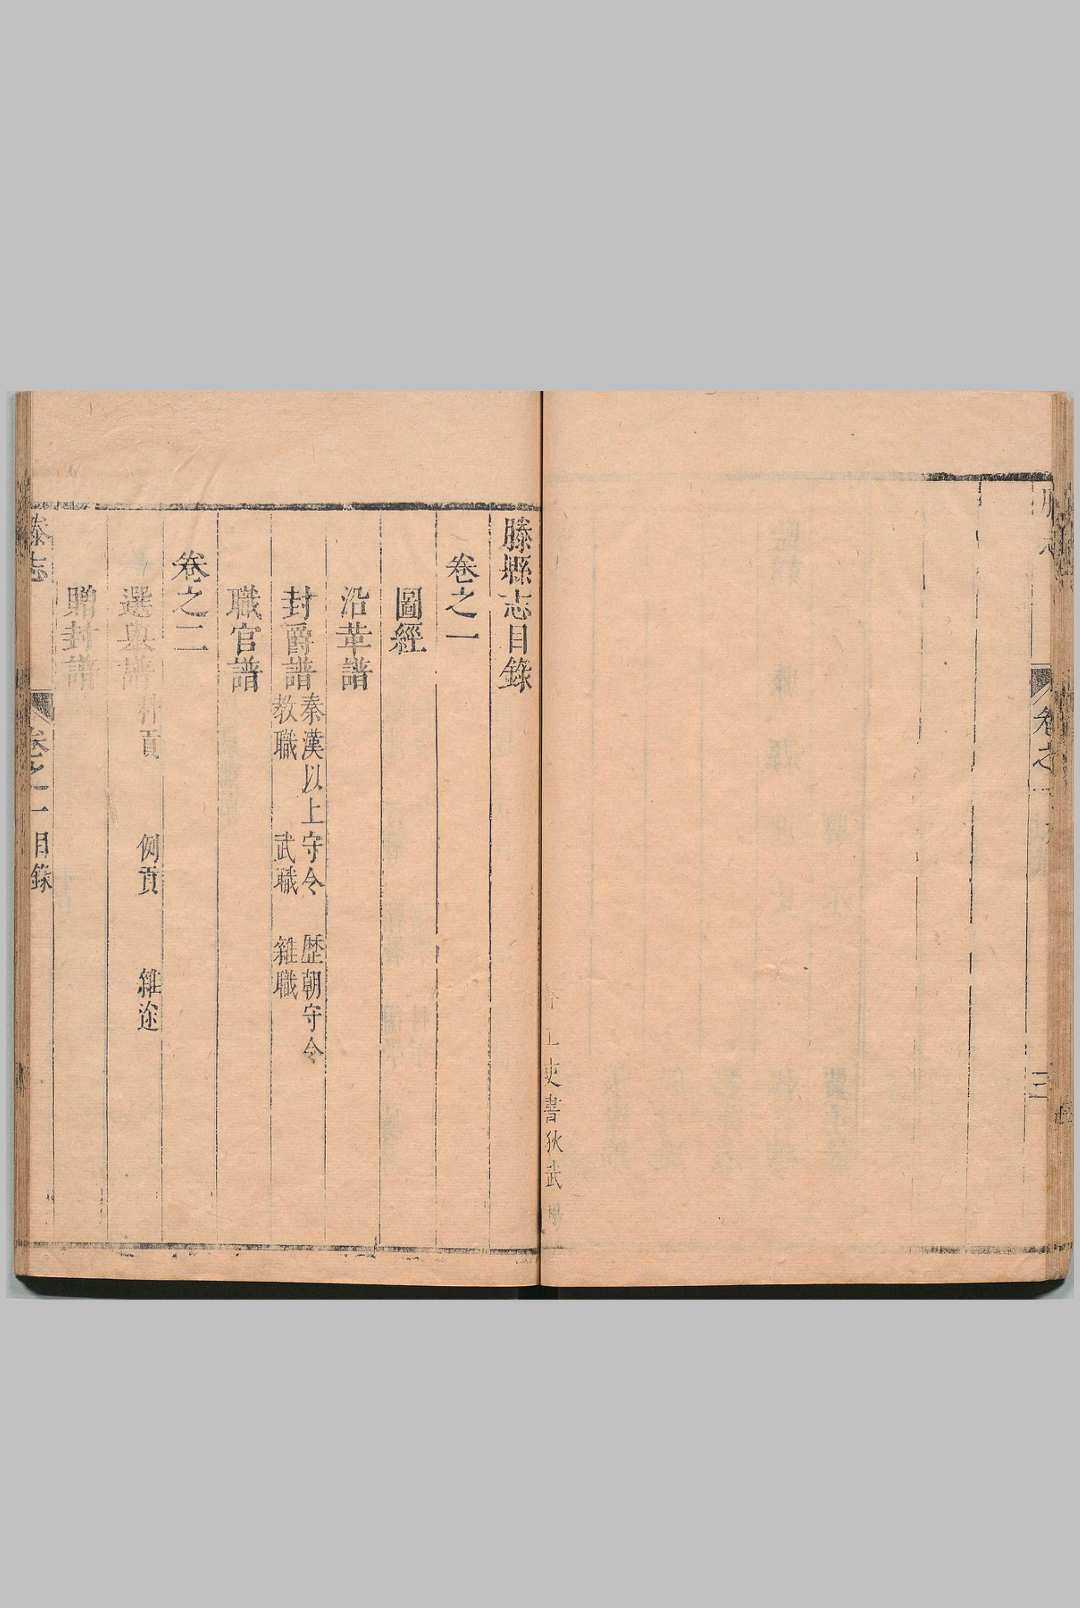 卷之一
三
史書狄武
滕縣志目錄
卷之一
圖經
沿革譜
封爵譜 秦漢以上守令 歷朝守令
教職 武職 雜職
職官譜
卷之二
選舉譜 科貢 例貢 雜途
贈封譜
滕志 卷之一目錄